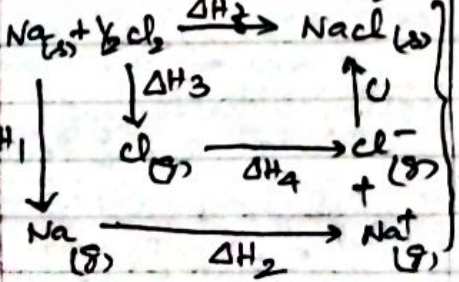 Na(s) + ½ Cl2 ΔHf NaCl(s)
ΔH3 U
H1 Cl(g) ΔH4 Cl-(g)
+
Na(g) ΔH2 Na+(g)